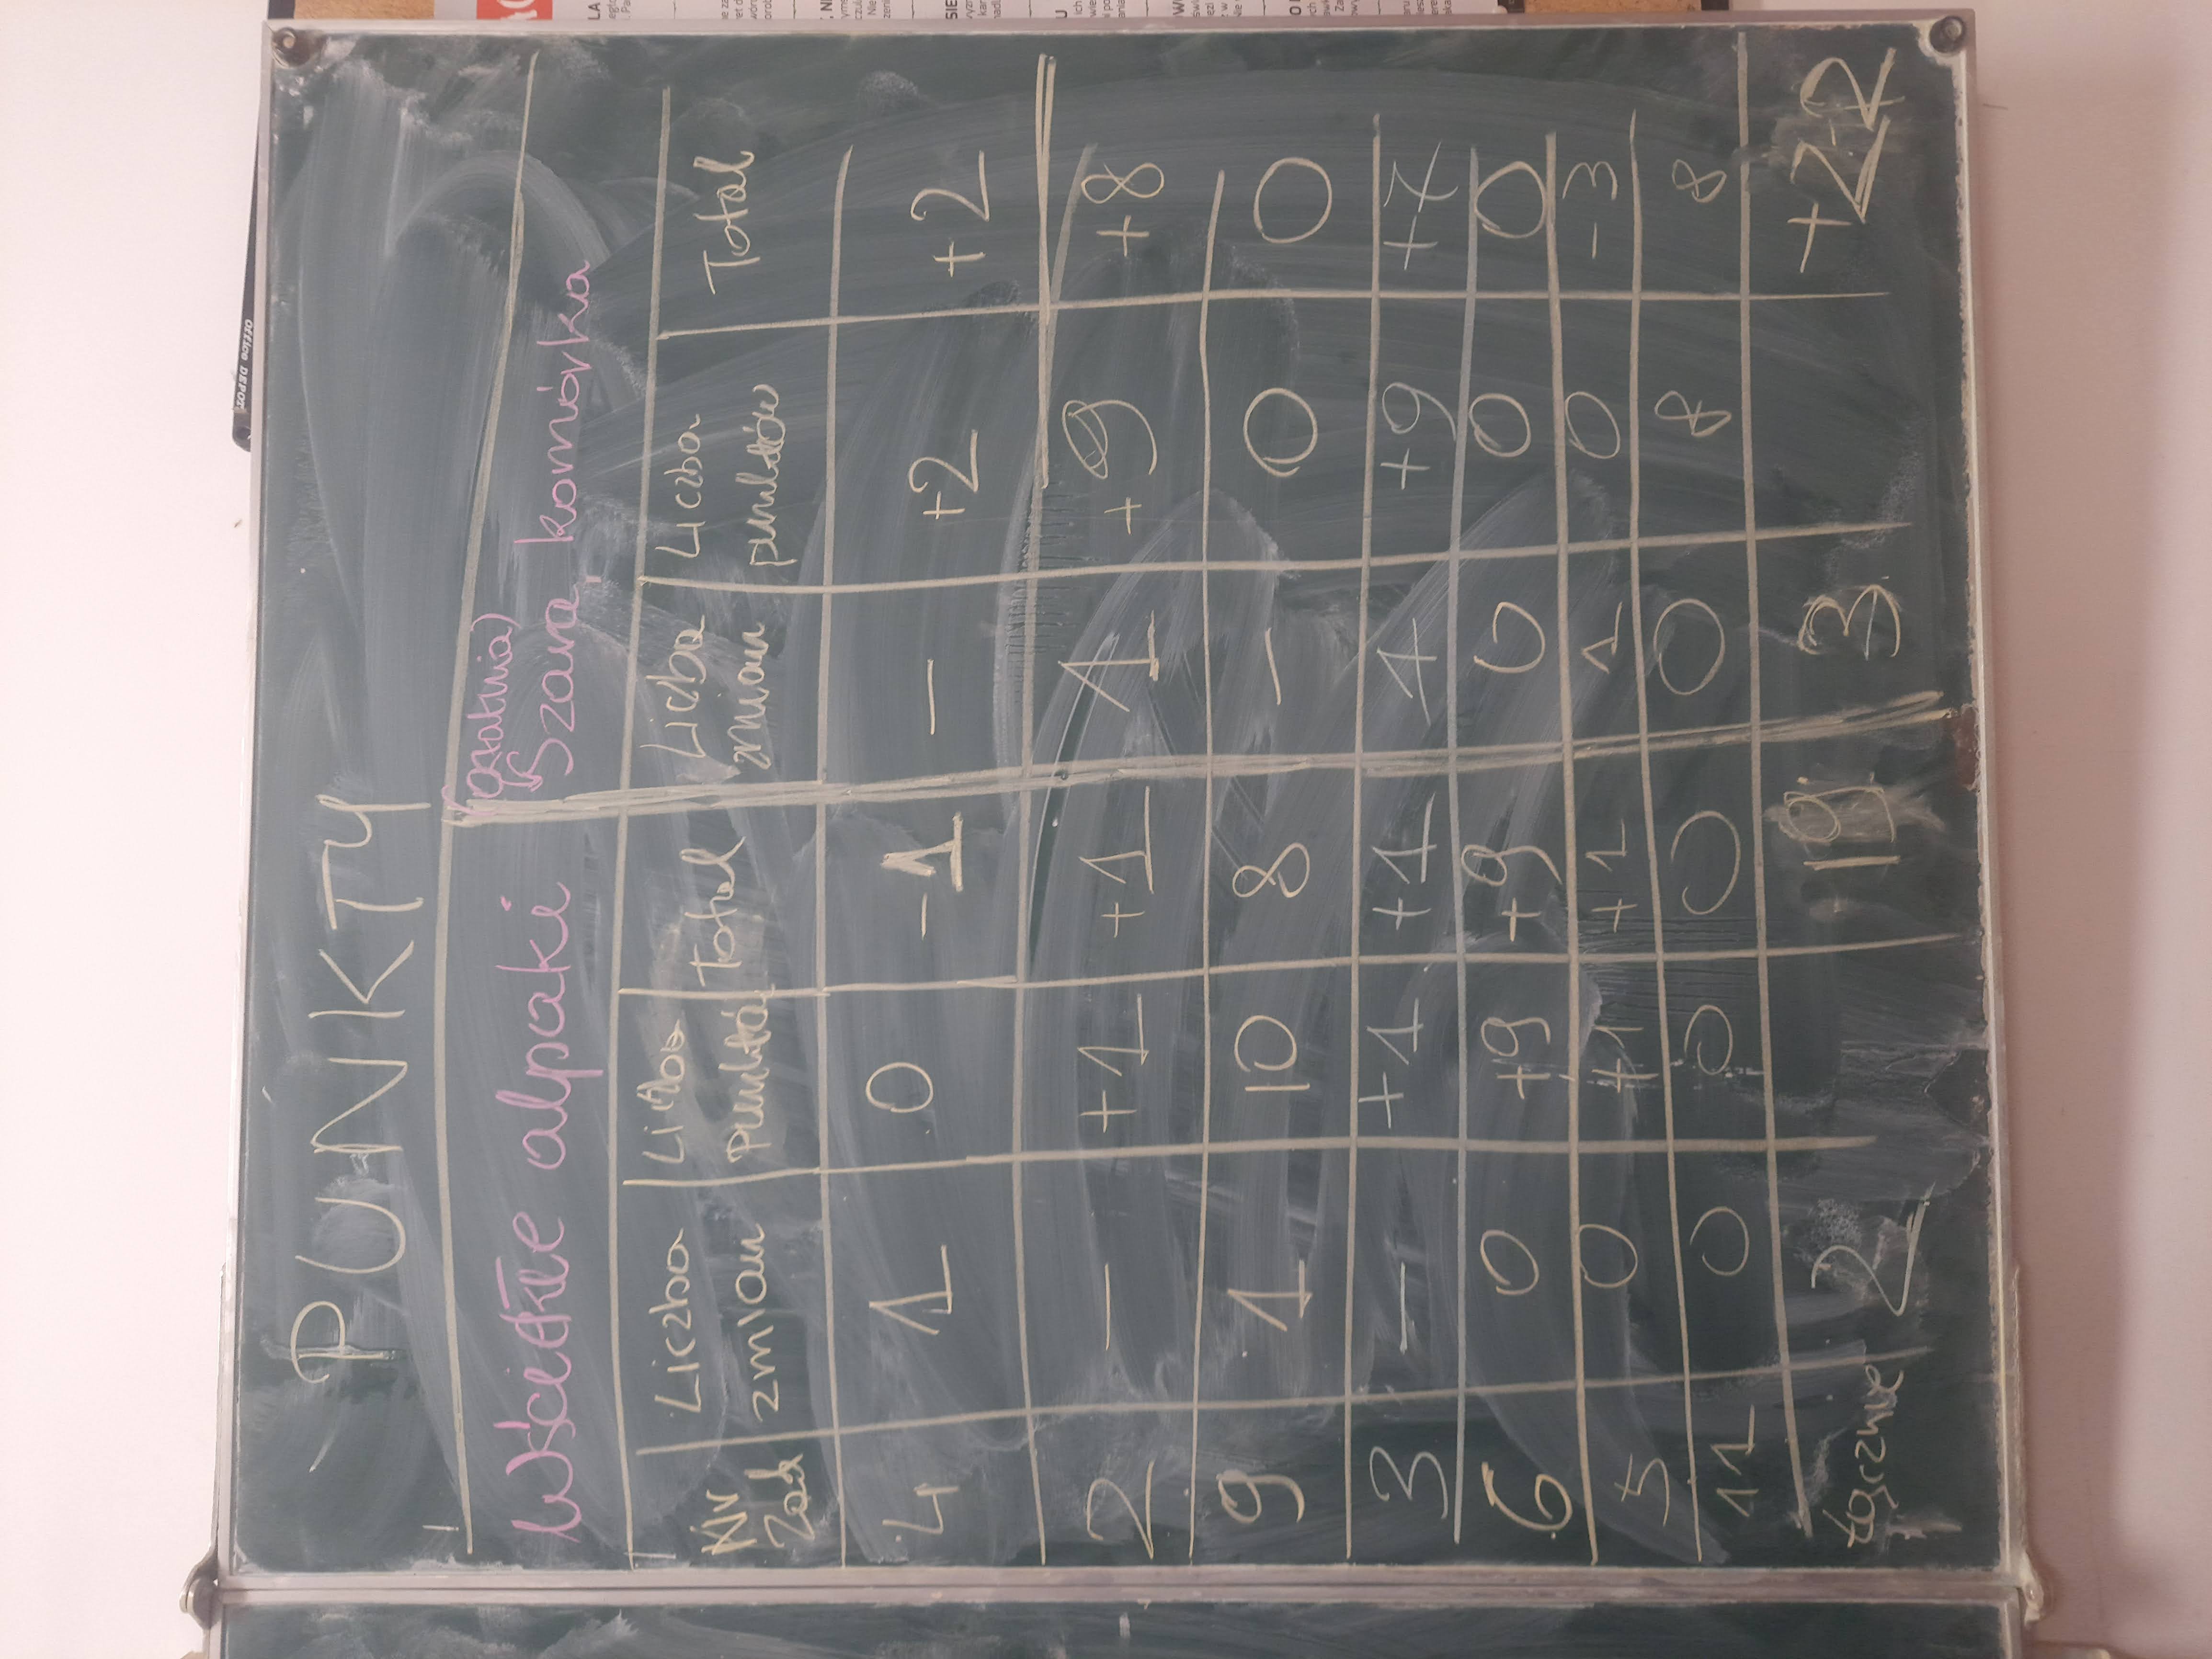 PUNKTY
Wściekłe alpaki
(ostatnia)
Szara komórka
Nr Zad
Liczba zmian
Liczba punktó
Total
Liczba zmian
Liczba punktów
Total
4 1 0 -1 – +2 +2
2 – +1 +1 1 +9 +8
9 1 10 8 – 10 0
3 – +1 +1 1 +9 +7
6 0 +9 +9 0 0 0
5 0 +1 +1 1 0 -3
11 0 0 0 0 8 8
łącznie 2 19 3 +22
Office DEPOT